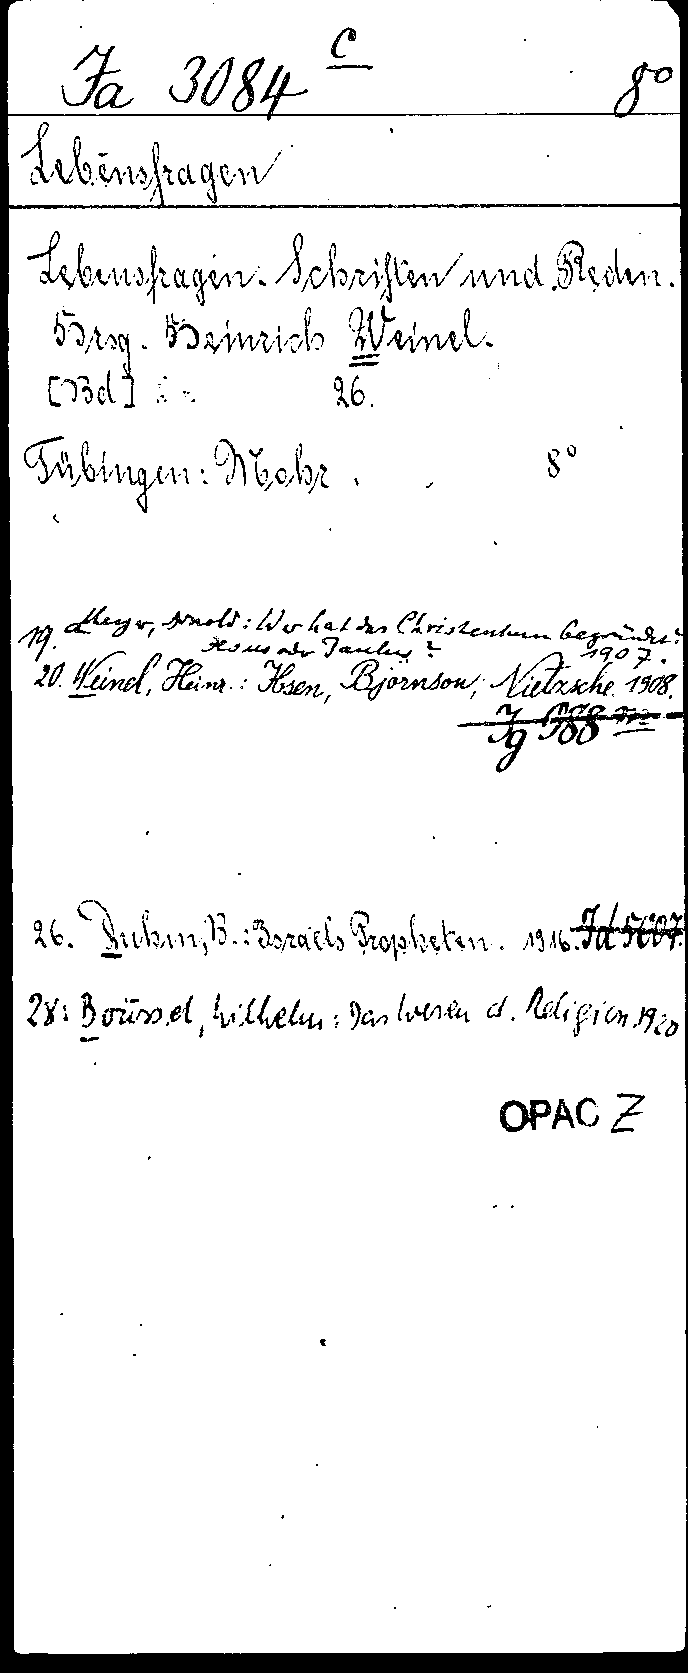 Ja 3084 c 8°
Lebensfragen
Lebensfragen. Schriften und Reden.
Hrsg. Heinrich Weinel.
[Bd] 26.
Tübingen: Mohr. 8°
19. Meyer, Arnold: Wer hat das Christentum begründet?
Jesus oder Paulus? 1907.
20. Weinel, Heinr.: Ibsen, Björnson, Nietzsche. 1908.
Jg 788
26. Duhm, B.: Israels Propheten. 1916. Jd 5607.
28: Bousset, Wilhelm: Das Wesen d. Religion. 1920
OPAC Z